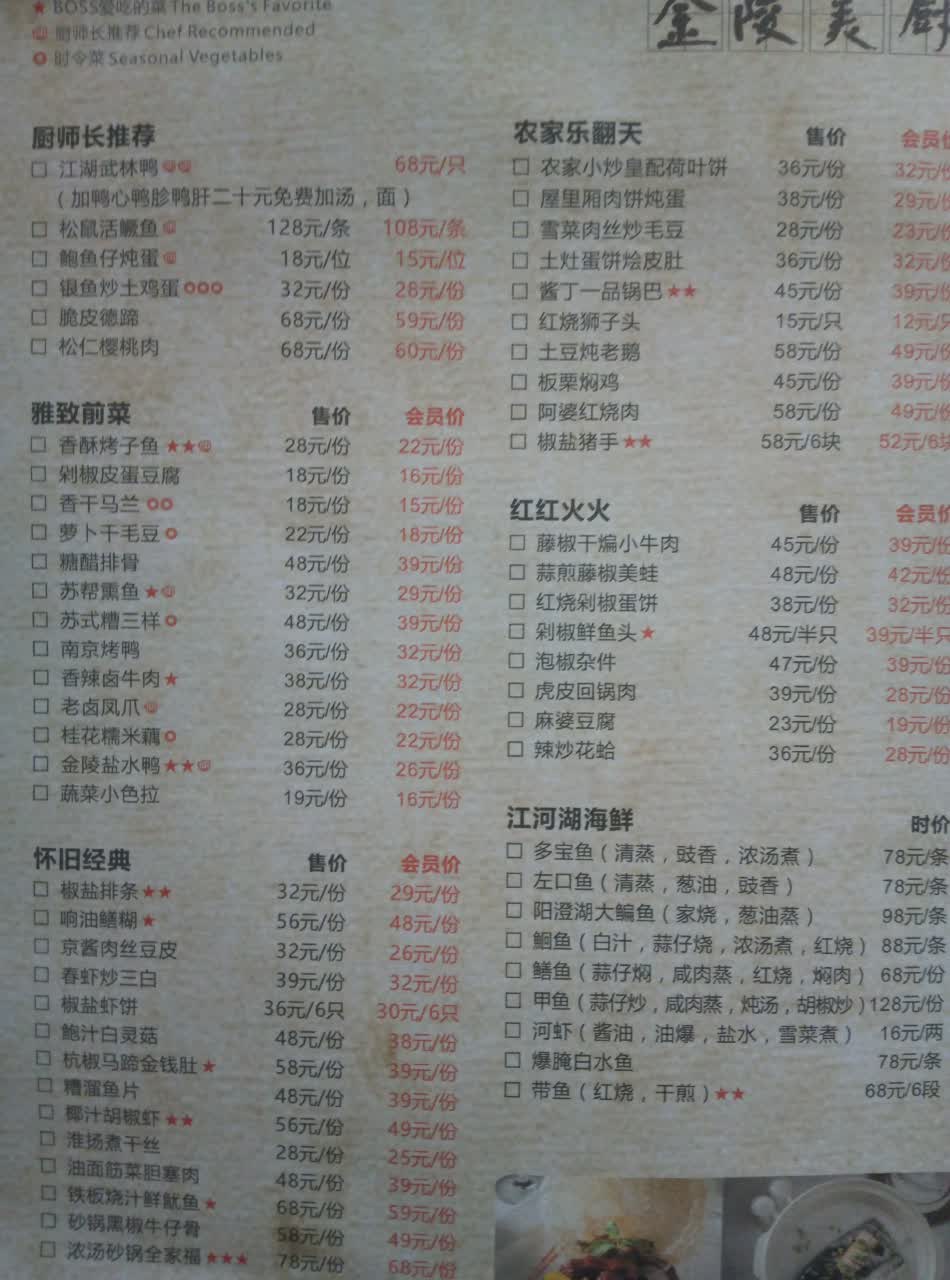 ★ BOSS爱吃的菜 The Boss's Favorite
厨师长推荐 Chef Recommended
时令菜 Seasonal Vegetables
金陵美厨
厨师长推荐
□ 江湖武林鸭 68元/只
（加鸭心鸭胗鸭肝二十元免费加汤，面）
□ 松鼠活鳜鱼 128元/条 108元/条
□ 鲍鱼仔炖蛋 18元/位 15元/位
□ 银鱼炒土鸡蛋 32元/份 28元/份
□ 脆皮德蹄 68元/份 59元/份
□ 松仁樱桃肉 68元/份 60元/份
雅致前菜 售价 会员价
□ 香酥烤子鱼★★ 28元/份 22元/份
□ 剁椒皮蛋豆腐 18元/份 16元/份
□ 香干马兰 18元/份 15元/份
□ 萝卜干毛豆 22元/份 18元/份
□ 糖醋排骨 48元/份 39元/份
□ 苏帮熏鱼★ 32元/份 29元/份
□ 苏式糟三样 48元/份 39元/份
□ 南京烤鸭 36元/份 32元/份
□ 香辣卤牛肉★ 38元/份 32元/份
□ 老卤凤爪 28元/份 22元/份
□ 桂花糯米藕 28元/份 22元/份
□ 金陵盐水鸭★★ 36元/份 26元/份
□ 蔬菜小色拉 19元/份 16元/份
怀旧经典 售价 会员价
□ 椒盐排条★★ 32元/份 29元/份
□ 响油鳝糊★ 56元/份 48元/份
□ 京酱肉丝豆皮 32元/份 26元/份
□ 春虾炒三白 39元/份 32元/份
□ 椒盐虾饼 36元/6只 30元/6只
□ 鲍汁白灵菇 48元/份 38元/份
□ 杭椒马蹄金钱肚★ 58元/份 39元/份
□ 糟溜鱼片 48元/份 39元/份
□ 椰汁胡椒虾★★ 56元/份 49元/份
□ 淮扬煮干丝 28元/份 25元/份
□ 油面筋菜胆塞肉 48元/份 39元/份
□ 铁板烧汁鲜鱿鱼★ 68元/份 59元/份
□ 砂锅黑椒牛仔骨 58元/份 49元/份
□ 浓汤砂锅全家福★★★ 78元/份 68元/份
农家乐翻天 售价 会员价
□ 农家小炒皇配荷叶饼 36元/份 32元/份
□ 屋里厢肉饼炖蛋 38元/份 29元/份
□ 雪菜肉丝炒毛豆 28元/份 23元/份
□ 土灶蛋饼烩皮肚 36元/份 32元/份
□ 酱丁一品锅巴★★ 45元/份 39元/份
□ 红烧狮子头 15元/只 12元/只
□ 土豆炖老鹅 58元/份 49元/份
□ 板栗焖鸡 45元/份 39元/份
□ 阿婆红烧肉 58元/份 49元/份
□ 椒盐猪手★★ 58元/6块 52元/6块
红红火火 售价 会员价
□ 藤椒干煸小牛肉 45元/份 39元/份
□ 蒜煎藤椒美蛙 48元/份 42元/份
□ 红烧剁椒蛋饼 38元/份 32元/份
□ 剁椒鲜鱼头★ 48元/半只 39元/半只
□ 泡椒杂件 47元/份 39元/份
□ 虎皮回锅肉 39元/份 28元/份
□ 麻婆豆腐 23元/份 19元/份
□ 辣炒花蛤 36元/份 28元/份
江河湖海鲜 时价
□ 多宝鱼（清蒸，豉香，浓汤煮） 78元/条
□ 左口鱼（清蒸，葱油，豉香） 78元/条
□ 阳澄湖大鳊鱼（家烧，葱油蒸） 98元/条
□ 鮰鱼（白汁，蒜仔烧，浓汤煮，红烧） 88元/条
□ 鳝鱼（蒜仔焖，咸肉蒸，红烧，焖肉） 68元/份
□ 甲鱼（蒜仔炒，咸肉蒸，炖汤，胡椒炒）128元/份
□ 河虾（酱油，油爆，盐水，雪菜煮） 16元/两
□ 爆腌白水鱼 78元/条
□ 带鱼（红烧，干煎）★★ 68元/6段